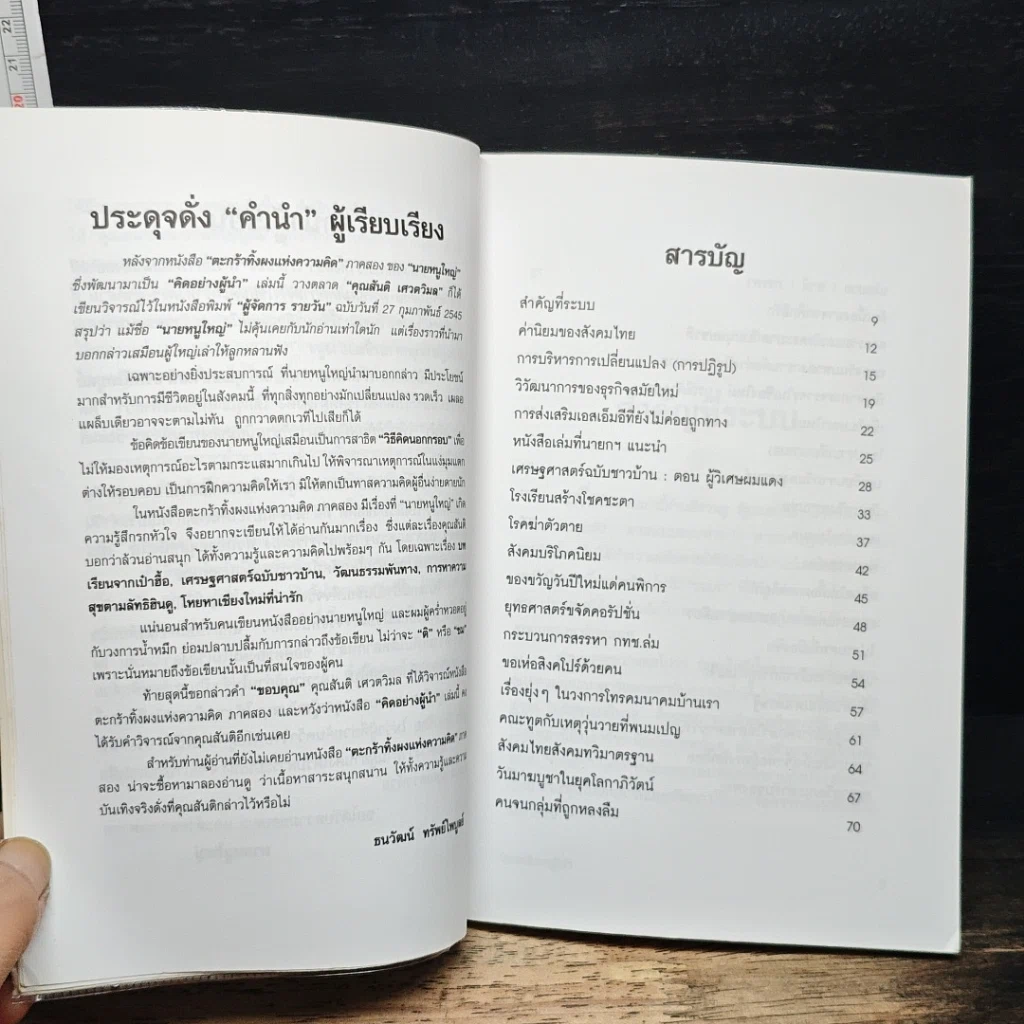 22
21
20
ประดุจดั่ง “คำนำ” ผู้เรียบเรียง
หลังจากหนังสือ “ตะกร้าทิ้งผงแห่งความคิด” ภาคสอง ของ “นายหนูใหญ่”
ซึ่งพัฒนามาเป็น “คิดอย่างผู้นำ” เล่มนี้ วางตลาด “คุณสันติ เศวตวิมล” ก็ได้
เขียนวิจารณ์ไว้ในหนังสือพิมพ์ “ผู้จัดการ รายวัน” ฉบับวันที่ 27 กุมภาพันธ์ 2545
สรุปว่า แม้ชื่อ “นายหนูใหญ่” ไม่คุ้นเคยกับนักอ่านเท่าใดนัก แต่เรื่องราวที่นำมา
บอกกล่าวเสมือนผู้ใหญ่เล่าให้ลูกหลานฟัง
เฉพาะอย่างยิ่งประสบการณ์ ที่นายหนูใหญ่นำมาบอกกล่าว มีประโยชน์
มากสำหรับการมีชีวิตอยู่ในสังคมนี้ ที่ทุกสิ่งทุกอย่างมักเปลี่ยนแปลง รวดเร็ว เผลอ
แผล็บเดียวอาจจะตามไม่ทัน ถูกกวาดตกเวทีไปเสียก็ได้
ข้อคิดข้อเขียนของนายหนูใหญ่เสมือนเป็นการสาธิต “วิธีคิดนอกกรอบ” เพื่อ
ไม่ให้มองเหตุการณ์อะไรตามกระแสมากเกินไป ให้พิจารณาเหตุการณ์ในแง่มุมแตก
ต่างให้รอบคอบ เป็นการฝึกความคิดให้เรา มิให้ตกเป็นทาสความคิดผู้อื่นง่ายดายนัก
ในหนังสือตะกร้าทิ้งผงแห่งความคิด ภาคสอง มีเรื่องที่ “นายหนูใหญ่” เกิด
ความรู้สึกรกหัวใจ จึงอยากจะเขียนให้ได้อ่านกันมากเรื่อง ซึ่งแต่ละเรื่องคุณสันติ
บอกว่าล้วนอ่านสนุก ได้ทั้งความรู้และความคิดไปพร้อมๆ กัน โดยเฉพาะเรื่อง บท
เรียนจากเป๋าฮื้อ, เศรษฐศาสตร์ฉบับชาวบ้าน, วัฒนธรรมพันทาง, การหาความ
สุขตามลัทธิฮินดู, โหยหาเชียงใหม่ที่น่ารัก
แน่นอนสำหรับคนเขียนหนังสืออย่างนายหนูใหญ่ และผมผู้คร่ำหวอดอยู่
กับวงการน้ำหมึก ย่อมปลาบปลื้มกับการกล่าวถึงข้อเขียน ไม่ว่าจะ “ติ” หรือ “ชม”
เพราะนั่นหมายถึงข้อเขียนนั้นเป็นที่สนใจของผู้คน
ท้ายสุดนี้ขอกล่าวคำ “ขอบคุณ” คุณสันติ เศวตวิมล ที่ได้วิจารณ์หนังสือ
ตะกร้าทิ้งผงแห่งความคิด ภาคสอง และหวังว่าหนังสือ “คิดอย่างผู้นำ” เล่มนี้ คง
ได้รับคำวิจารณ์จากคุณสันติอีกเช่นเคย
สำหรับท่านผู้อ่านที่ยังไม่เคยอ่านหนังสือ “ตะกร้าทิ้งผงแห่งความคิด” ภาค
สอง น่าจะซื้อหามาลองอ่านดู ว่าเนื้อหาสาระสนุกสนาน ให้ทั้งความรู้และความ
บันเทิงจริงดั่งที่คุณสันติกล่าวไว้หรือไม่
ธนวัฒน์ ทรัพย์ไพบูลย์
สารบัญ
สำคัญที่ระบบ 9
ค่านิยมของสังคมไทย 12
การบริหารการเปลี่ยนแปลง (การปฏิรูป) 15
วิวัฒนาการของธุรกิจสมัยใหม่ 19
การส่งเสริมเอสเอ็มอีที่ยังไม่ค่อยถูกทาง 22
หนังสือเล่มที่นายกฯ แนะนำ 25
เศรษฐศาสตร์ฉบับชาวบ้าน : ตอน ผู้วิเศษผมแดง 28
โรงเรียนสร้างโชคชะตา 33
โรคฆ่าตัวตาย 37
สังคมบริโภคนิยม 42
ของขวัญวันปีใหม่แด่คนพิการ 45
ยุทธศาสตร์ขจัดคอรัปชั่น 48
กระบวนการสรรหา กทช.ล่ม 51
ขอเห่อสิงคโปร์ด้วยคน 54
เรื่องยุ่งๆ ในวงการโทรคมนาคมบ้านเรา 57
คณะทูตกับเหตุวุ่นวายที่พนมเปญ 61
สังคมไทยสังคมทวิมาตรฐาน 64
วันมาฆบูชาในยุคโลกาภิวัตน์ 67
คนจนกลุ่มที่ถูกหลงลืม 70